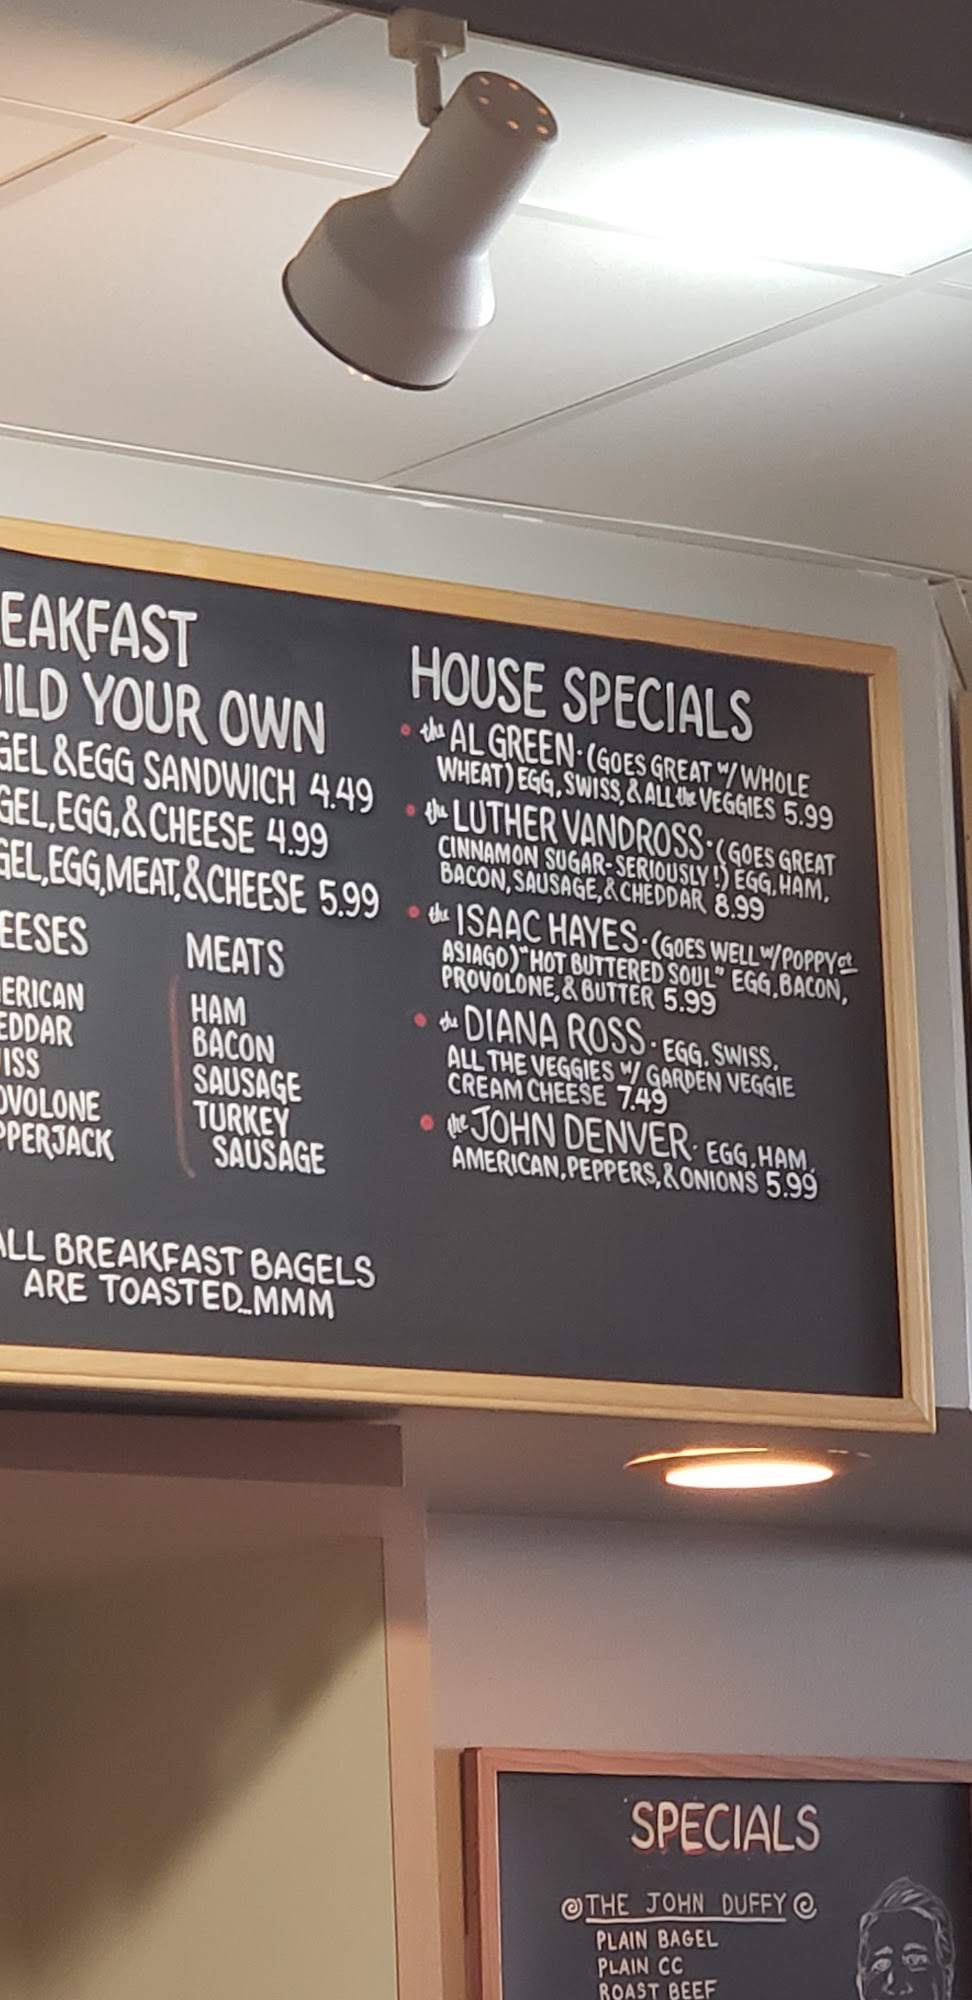 EAKFAST
ILD YOUR OWN
GEL & EGG SANDWICH 4.49
GEL, EGG, & CHEESE 4.99
GEL, EGG, MEAT, & CHEESE 5.99
EESES
ERICAN
EDDAR
ISS
OVOLONE
PPERJACK
MEATS
HAM
BACON
SAUSAGE
TURKEY
SAUSAGE
ALL BREAKFAST BAGELS
ARE TOASTED...MMM
HOUSE SPECIALS
• the AL GREEN - (GOES GREAT W/ WHOLE
WHEAT) EGG, SWISS, & ALL the VEGGIES 5.99
• the LUTHER VANDROSS - (GOES GREAT
CINNAMON SUGAR - SERIOUSLY!) EGG, HAM,
BACON, SAUSAGE, & CHEDDAR 8.99
• the ISAAC HAYES - (GOES WELL W/ POPPY or
ASIAGO) "HOT BUTTERED SOUL" EGG, BACON,
PROVOLONE, & BUTTER 5.99
• the DIANA ROSS - EGG, SWISS,
ALL THE VEGGIES W/ GARDEN VEGGIE
CREAM CHEESE 7.49
• the JOHN DENVER - EGG, HAM,
AMERICAN, PEPPERS, & ONIONS 5.99
SPECIALS
THE JOHN DUFFY
PLAIN BAGEL
PLAIN CC
ROAST BEEF